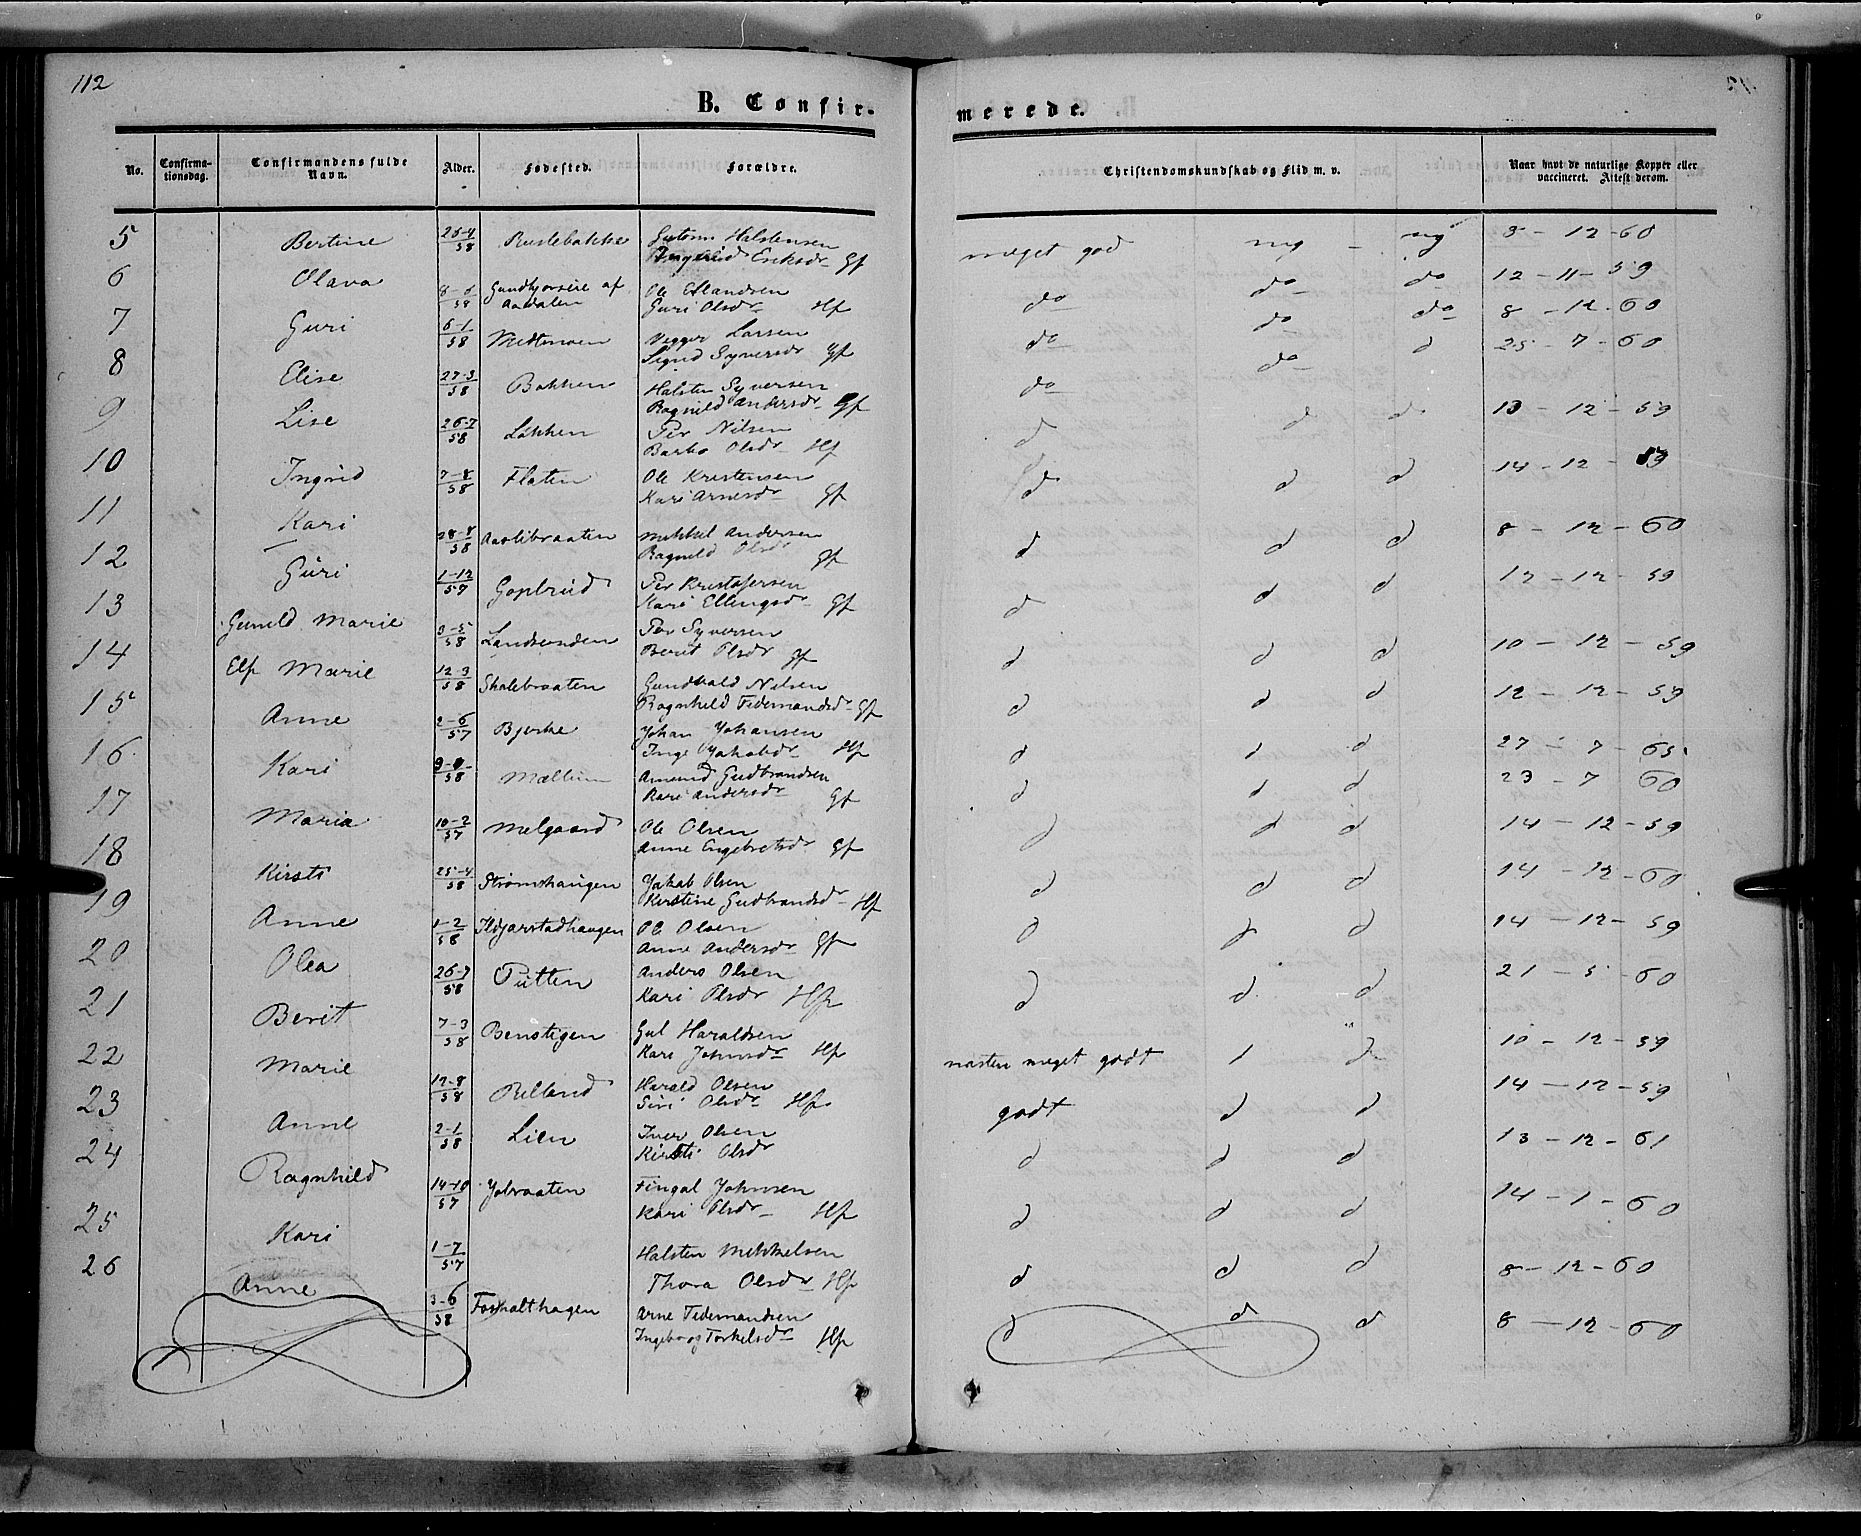 112
B. Confirmerede.
No. Confirmationsdag. Confirmandens fulde Navn. Alder. Fødested. Forældre. Christendomskundskab og Flid m. v. Naar havt de naturlige Kopper eller vaccineret. Attest derom.
5 Bertine 25-4 58 Rustebakke Guttorm Halstensen meget god mg - mg 8-12-60
Ingrid Eriksdr Gf
6 Olava 58 af Aadalen Ole Erlandsen do do do 12-11-59
Guri Olsdr Hf
7 Guri 6-1 58 Midtmoen Vegger Larsen do do do 8-12-60
Sigrid Syversdr Gf
8 Elise 27-3 58 Bakken Halsten Syversen do do d 25-7-60
Ragnild Andersdr Gf
9 Lise 26-7 58 Løkken Per Nilsen d d d 13-12-59
Barbo Olsdr Hf
10 Ingrid 7-8 58 Flaten Ole Kristensen d d d 14-12-59
Kari Arnesdr Gf
11 Kari 28-8 58 Aaslibraaten Mikkel Andersen d d d 8-12-60
Ragnild Olsdr Gf
12 Guri 1-12 57 Goplerud Per Kristofersen d d d 12-12-59
Kari Ellingsdr Gf
13 Gunild Marie 3-5 58 Landsenden Per Syversen d d d 10-12-59
Berit Olsdr Gf
14 Elf Marie 12-3 58 Skalebraaten Gundbald Nilsen d d d 12-12-59
Ragnhild Tidemandsdr Gf
15 Anne 2-6 57 Bjerke Johan Johansen d d d 27-7-65
Inge Jakobdr Hf
16 Kari 58 Mællum Amund Gudbrandsen d d d 23-7 60
Kari Andersdr Gf
17 Maria 10-2 57 Melgaard Ole Olsen d d d 14-12-59
Anne Engebretsdr Gf
18 Kirsti 25-4 58 Strømshaugen Jakob Olsen d d d 14-12-60
Kirstine Gudbrandsd Hf
19 Anne 1-2 58 Ildjarstadhaugen Ole Olsen d d d 14-12-59
Anne Andersdr Gf
20 Olea 26-7 58 Putten Anders Olsen d d d 21-5-60
Kari Olsdr Hf
21 Berit 7-3 58 Benstigen Gul Haraldsen næsten meget godt d d 10-12-59
Kari Johnsdr Hf
22 Marie 12-8 58 Rilland Harald Olsen godt d d 14-12-59
Siri Olsdr Hf
23 Anne 2-1 58 Lien Iver Olsen d d d 13-12-61
Kirsti Olsdr
24 Ragnhild 14-10 57 Jobraaten Fingal Johnsen d d d 14-1-60
Kari Olsdr Hf
25 Kari 1-7 57 Halsten Mikkelsen d d d 8-12-60
Thora Olsdr Hf
26 Anne 3-6 58 Foshalthagen Arne Tidemandsen d d d 8-12-60
Ingeborg Torkelsdr Hf